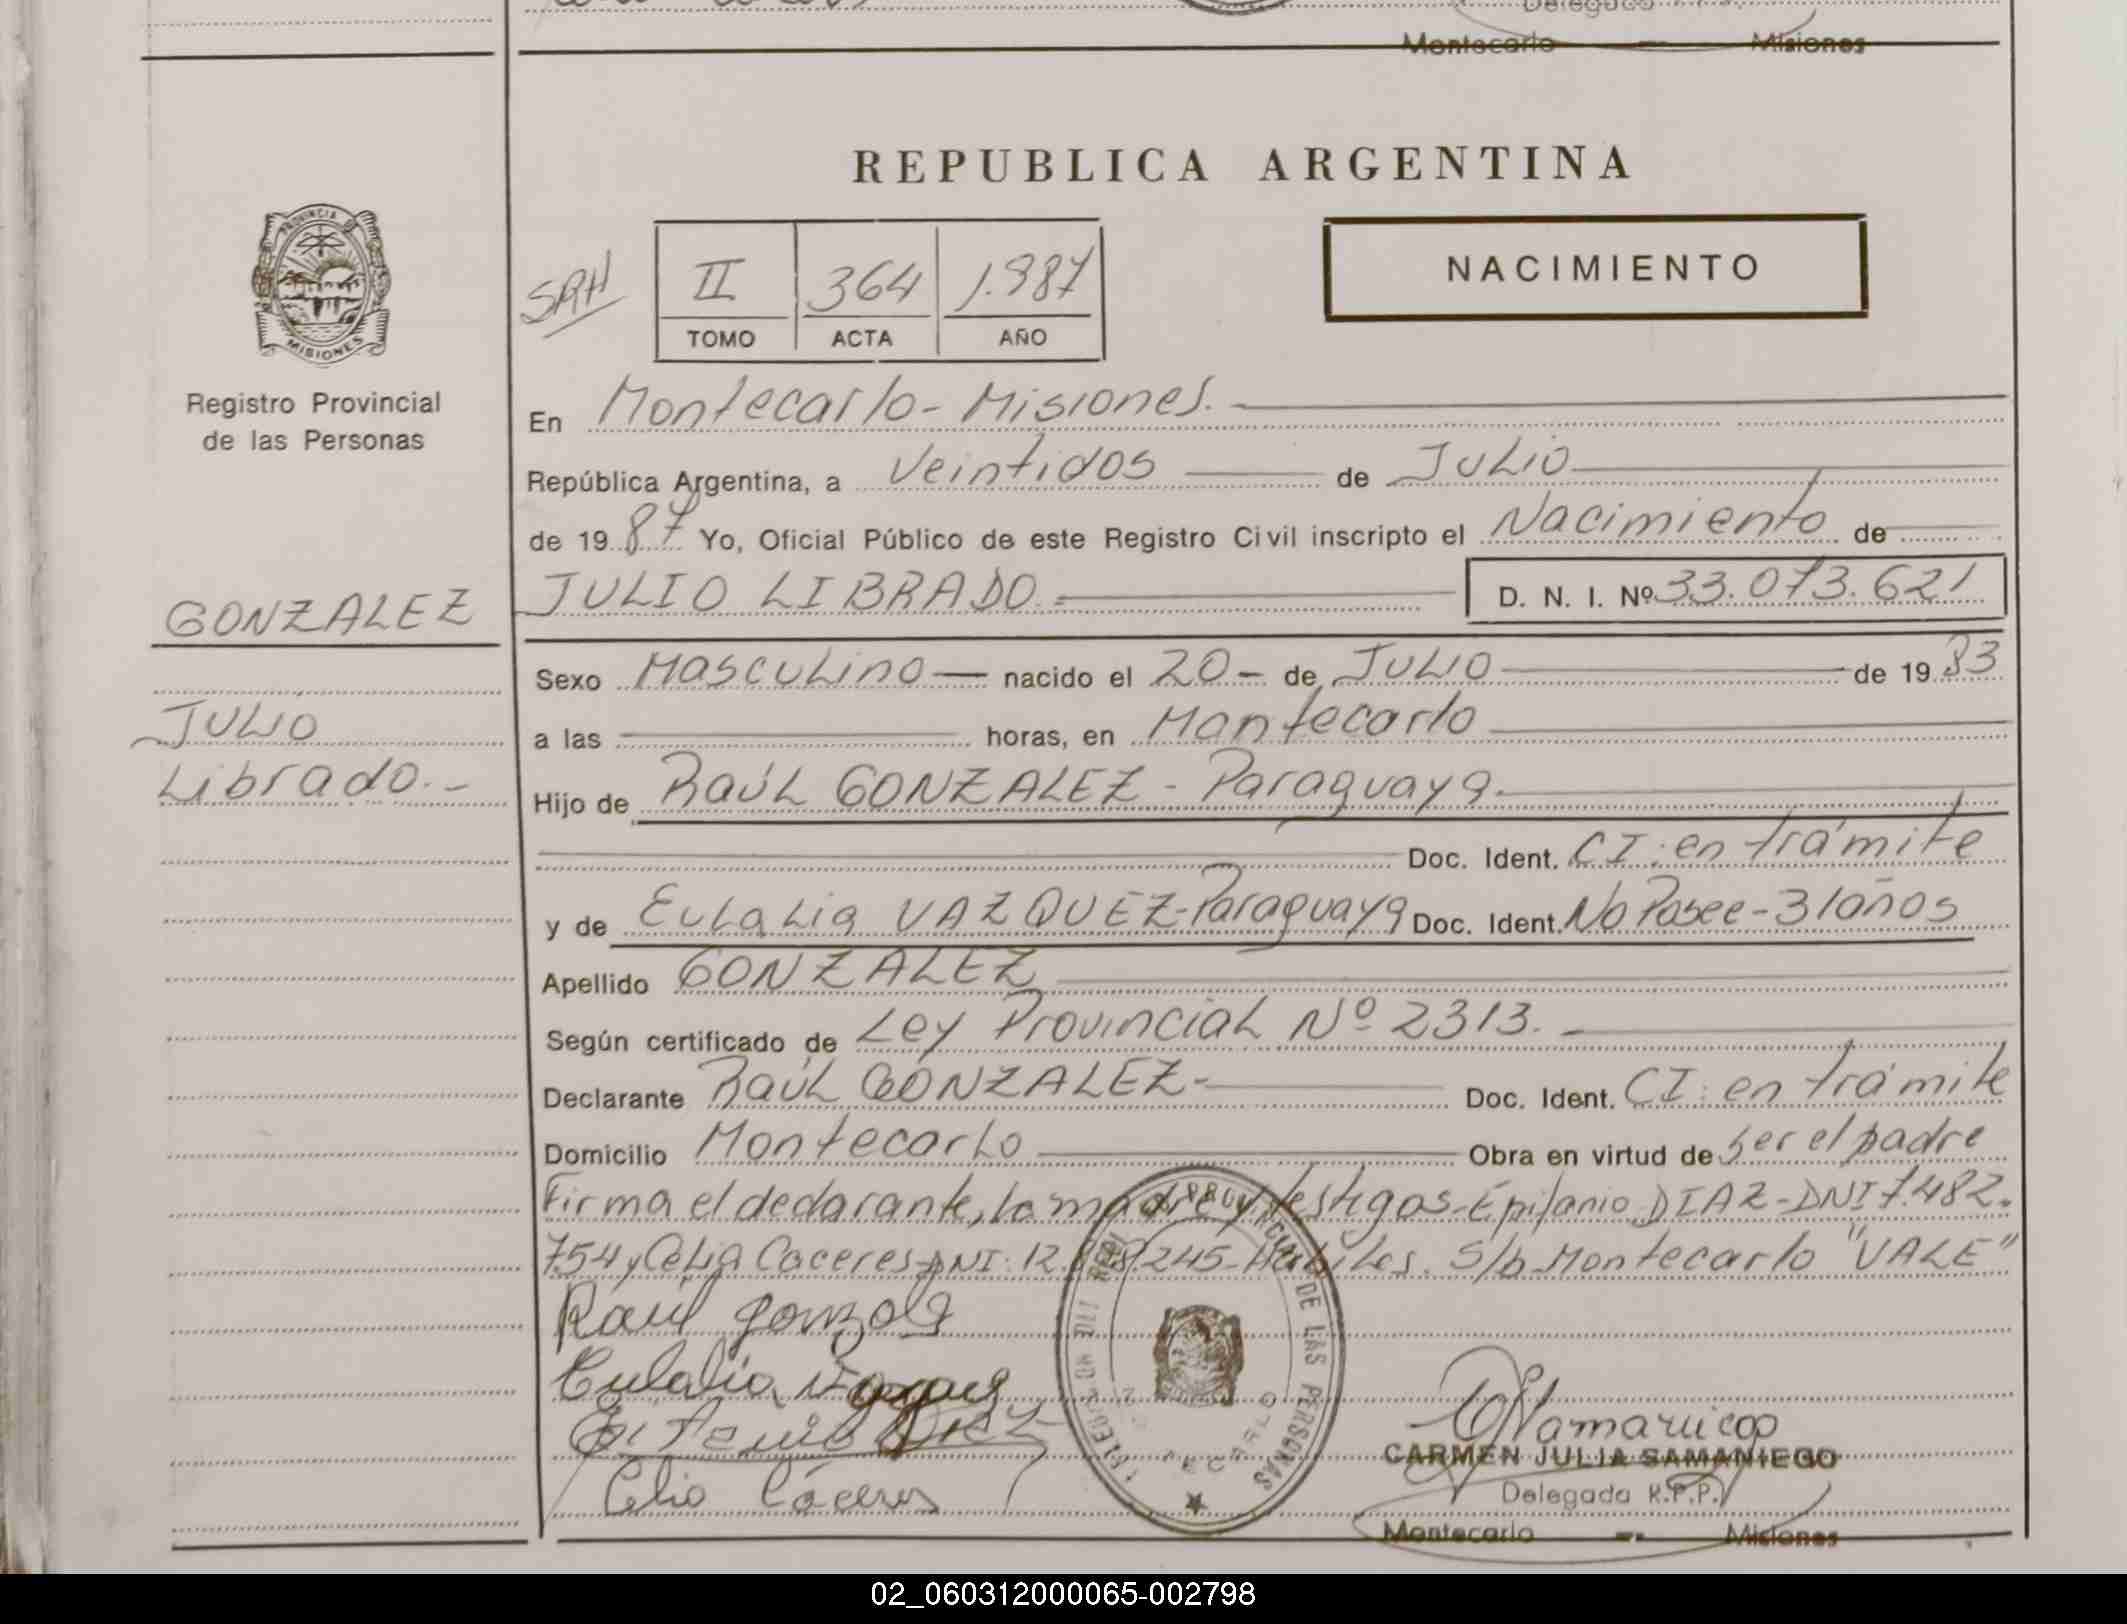 Delegada R.P.P.
Montecarlo - Misiones
REPUBLICA ARGENTINA
PROVINCIA DE
MISIONES
Registro Provincial
de las Personas
II 364 1.987
TOMO ACTA AÑO
NACIMIENTO
En Montecarlo - Misiones.
República Argentina, a Veintidos de Julio
de 1987 Yo, Oficial Público de este Registro Civil inscripto el Nacimiento de
GONZALEZ
JULIO LIBRADO.- D. N. I. Nº 33.073.621
Sexo Masculino nacido el 20 - de Julio de 19 83
JULIO
a las horas, en Montecarlo
Librado.-
Hijo de Raúl GONZALEZ - Paraguaya.
Doc. Ident. CI: en trámite
y de Eulalia VAZQUEZ - Paraguaya Doc. Ident. No Posee - 31 años
Apellido GONZALEZ
Según certificado de Ley Provincial Nº 2313. -
Declarante Raúl GONZALEZ - Doc. Ident. CI: en trámite
Domicilio Montecarlo Obra en virtud de ser el padre
Firma el declarante, la madre y testigos - Epifanio DIAZ - DNI 7.482.
754 y Celia Caceres - DNI: 245 - Hábiles. S/b Montecarlo "VALE"
Raúl
Eulalia
Celia Cáceres
DE LAS PERSONAS
CARMEN JULIA SAMANIEGO
Delegada R.P.P.
Montecarlo -- Misiones
02_060312000065-002798